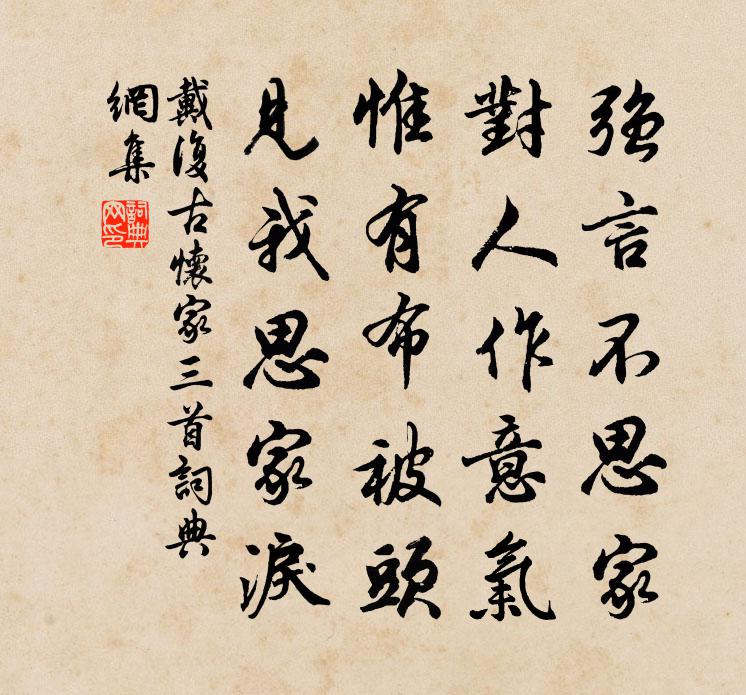 強言不思家
對人作意氣
惟有布被頭
見我思家淚
戴復古懷家三首詞典
網集
詞典
网印